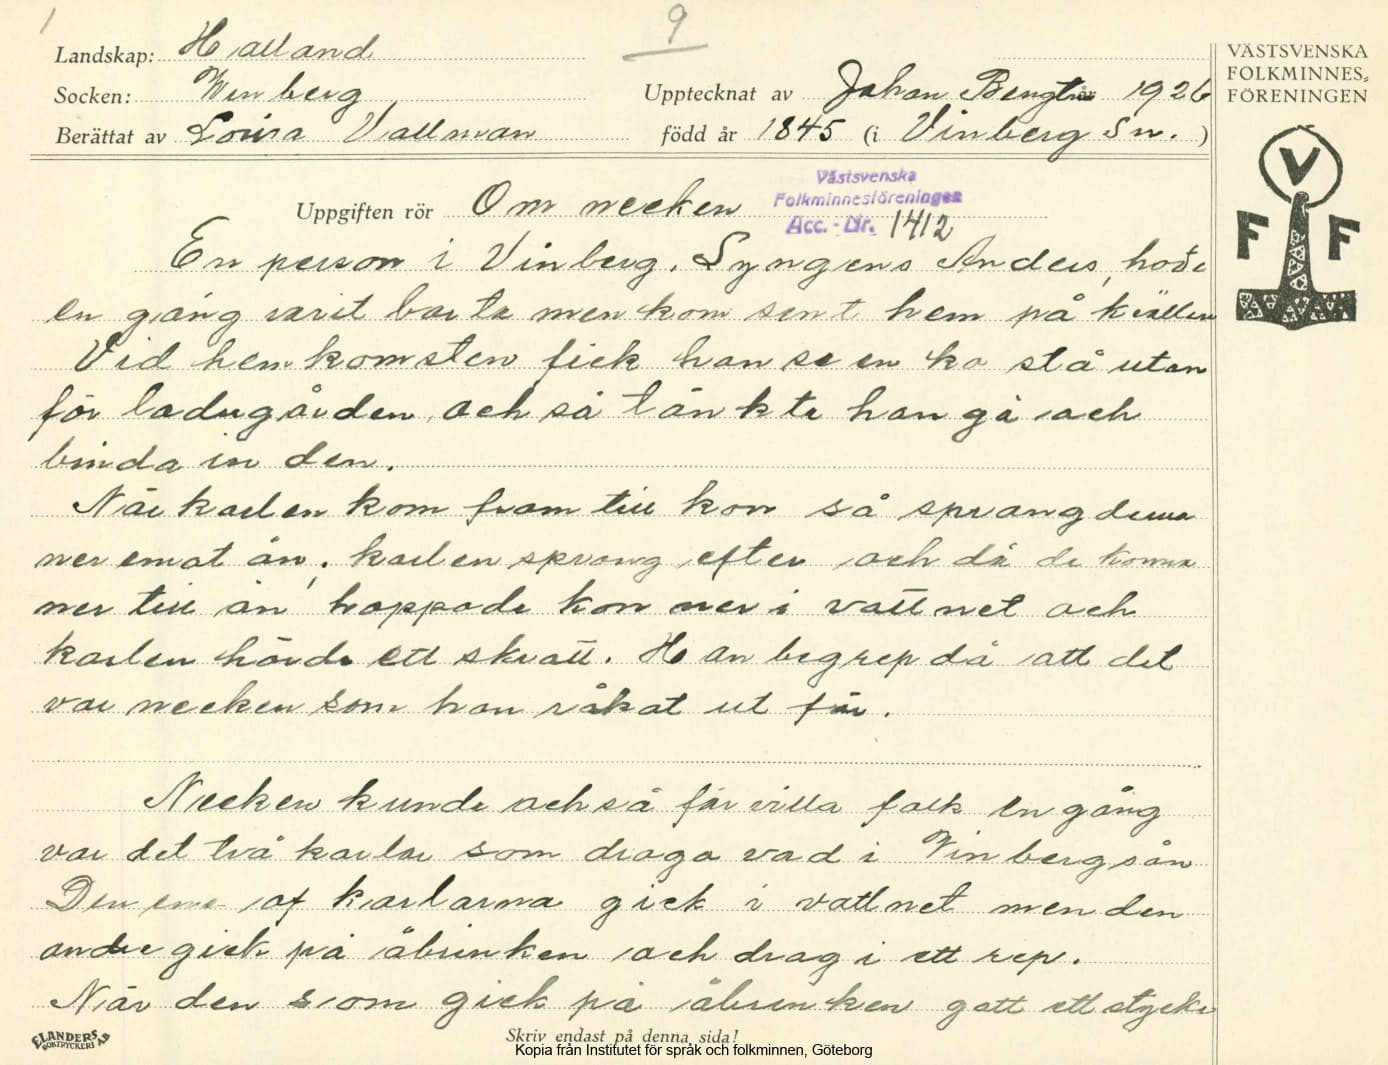 1
9
Landskap: Halland
Socken: Winberg
Upptecknat av Johan Bengts 1926
Berättat av Lovisa Vallman
född år 1845 (i Vinberg Sn. )
VÄSTSVENSKA
FOLKMINNES-
FÖRENINGEN
V
F F
Uppgiften rör Om necken
Västsvenska
Folkminnesföreningen
Acc. - Nr. 1412
En person i Vinberg, Lyngens Anders, hade
en gång varit borta men kom sent hem på kvällen
Vid hemkomsten fick han se en ko stå utan
för ladugården, och så tänkte han gå och
binda in den.
När karlen kom fram till kon så sprang denna
ner emot ån. karlen sprang efter och då de komma
ner till ån, hoppade kon ner i vattnet och
karlen hörde ett skratt. Han begrep då att det
var necken som han råkat ut för.
Necken kunde också förvilla folk En gång
var det två karlar som draga vad i Vinbergsån
Den ene af karlarna gick i vattnet men den
andre gick på åbrinken och drog i ett rep.
När den som gick på åbrinken gott ett stycke
ELANDERS
BOKTRYCKERI AB
Skriv endast på denna sida!
Kopia från Institutet för språk och folkminnen, Göteborg